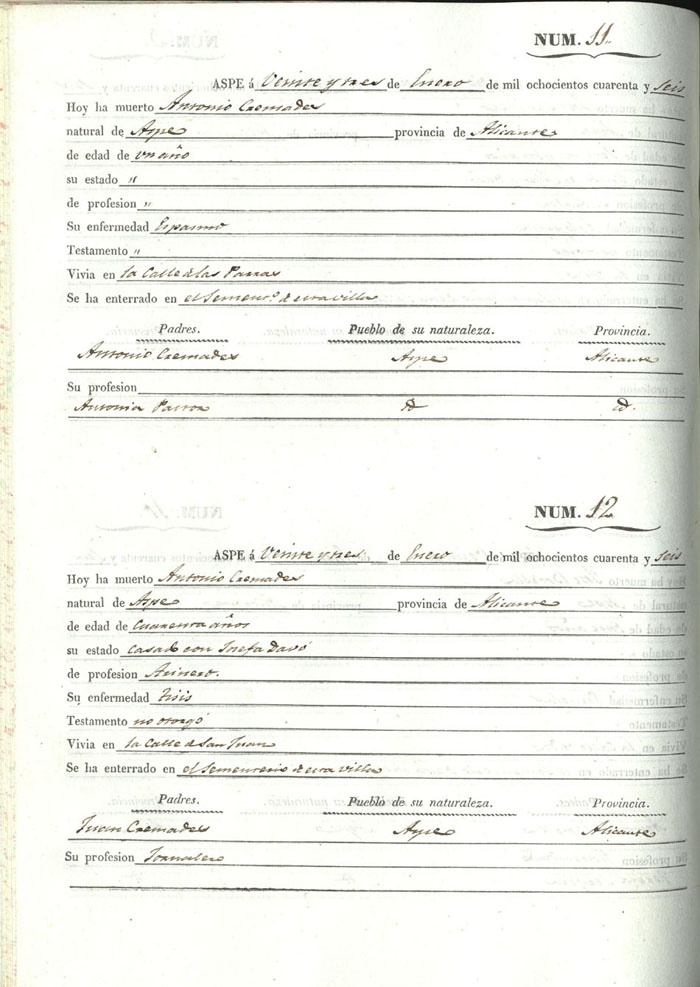 NUM. 11.
ASPE á Veinte y tres de Enero de mil ochocientos cuarenta y seis
Hoy ha muerto Antonio Cremades
natural de Aspe provincia de Alicante
de edad de un año
su estado "
de profesion "
Su enfermedad Espasmo
Testamento "
Vivia en la Calle de las Parras
Se ha enterrado en el Sementº de esta villa
Padres. Pueblo de su naturaleza. Provincia.
Antonio Cremades Aspe Alicante
Su profesion
Antonia id id.
NUM. 12
ASPE á Veinte y tres de Enero de mil ochocientos cuarenta y seis
Hoy ha muerto Antonio Cremades
natural de Aspe provincia de Alicante
de edad de Cuarenta años
su estado casado con Josefa Davó
de profesion
Su enfermedad tisis
Testamento no otorgó
Vivia en la Calle de San Juan
Se ha enterrado en el Sementerio de esta villa
Padres. Pueblo de su naturaleza. Provincia.
Juan Cremades Aspe Alicante
Su profesion Jornalero